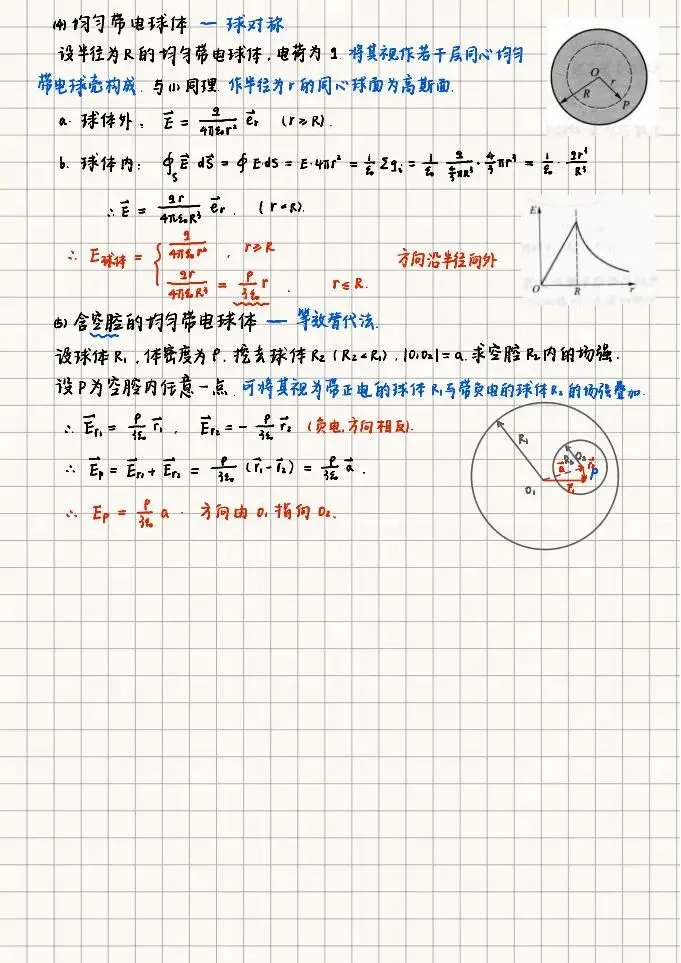 (4) 均匀带电球体 — 球对称
设半径为R的均匀带电球体,电荷为q 将其视作若干层同心均匀
带电球壳构成. 与(1)同理. 作半径为r的同心球面为高斯面.
a. 球体外: E⃗ = q/4πε₀r² e⃗r (r≥R).
b. 球体内: ∮s E⃗·dS⃗ = ∮E·dS = E·4πr² = 1/ε₀ Σqi = 1/ε₀ · q/(4/3 πR³) · 4/3 πr³ = 1/ε₀ · qr³/R³
∴ E⃗ = qr/4πε₀R³ e⃗r. (r<R).
∴ E球体 = { q/4πε₀r², r≥R
qr/4πε₀R³ = ρ/3ε₀ r . r≤R.
方向沿半径向外
(5) 含空腔的均匀带电球体 — 等效替代法.
设球体R₁, 体密度为ρ. 挖去球体R₂ (R₂<R₁), |O₁O₂|=a. 求空腔R₂内的场强.
设P为空腔内任意一点. 可将其视为带正电的球体R₁与带负电的球体R₂的场强叠加.
∴ E⃗r₁ = ρ/3ε₀ r⃗₁, E⃗r₂ = - ρ/3ε₀ r⃗₂ (负电,方向相反).
∴ E⃗p = E⃗r₁ + E⃗r₂ = ρ/3ε₀ (r⃗₁-r⃗₂) = ρ/3ε₀ a⃗.
∴ Ep = ρ/3ε₀ a. 方向由O₁指向O₂.
O
R
r
P
E
O
R
r
R₁
R₂
O₂
a⃗
r⃗₂
P
r⃗₁
O₁